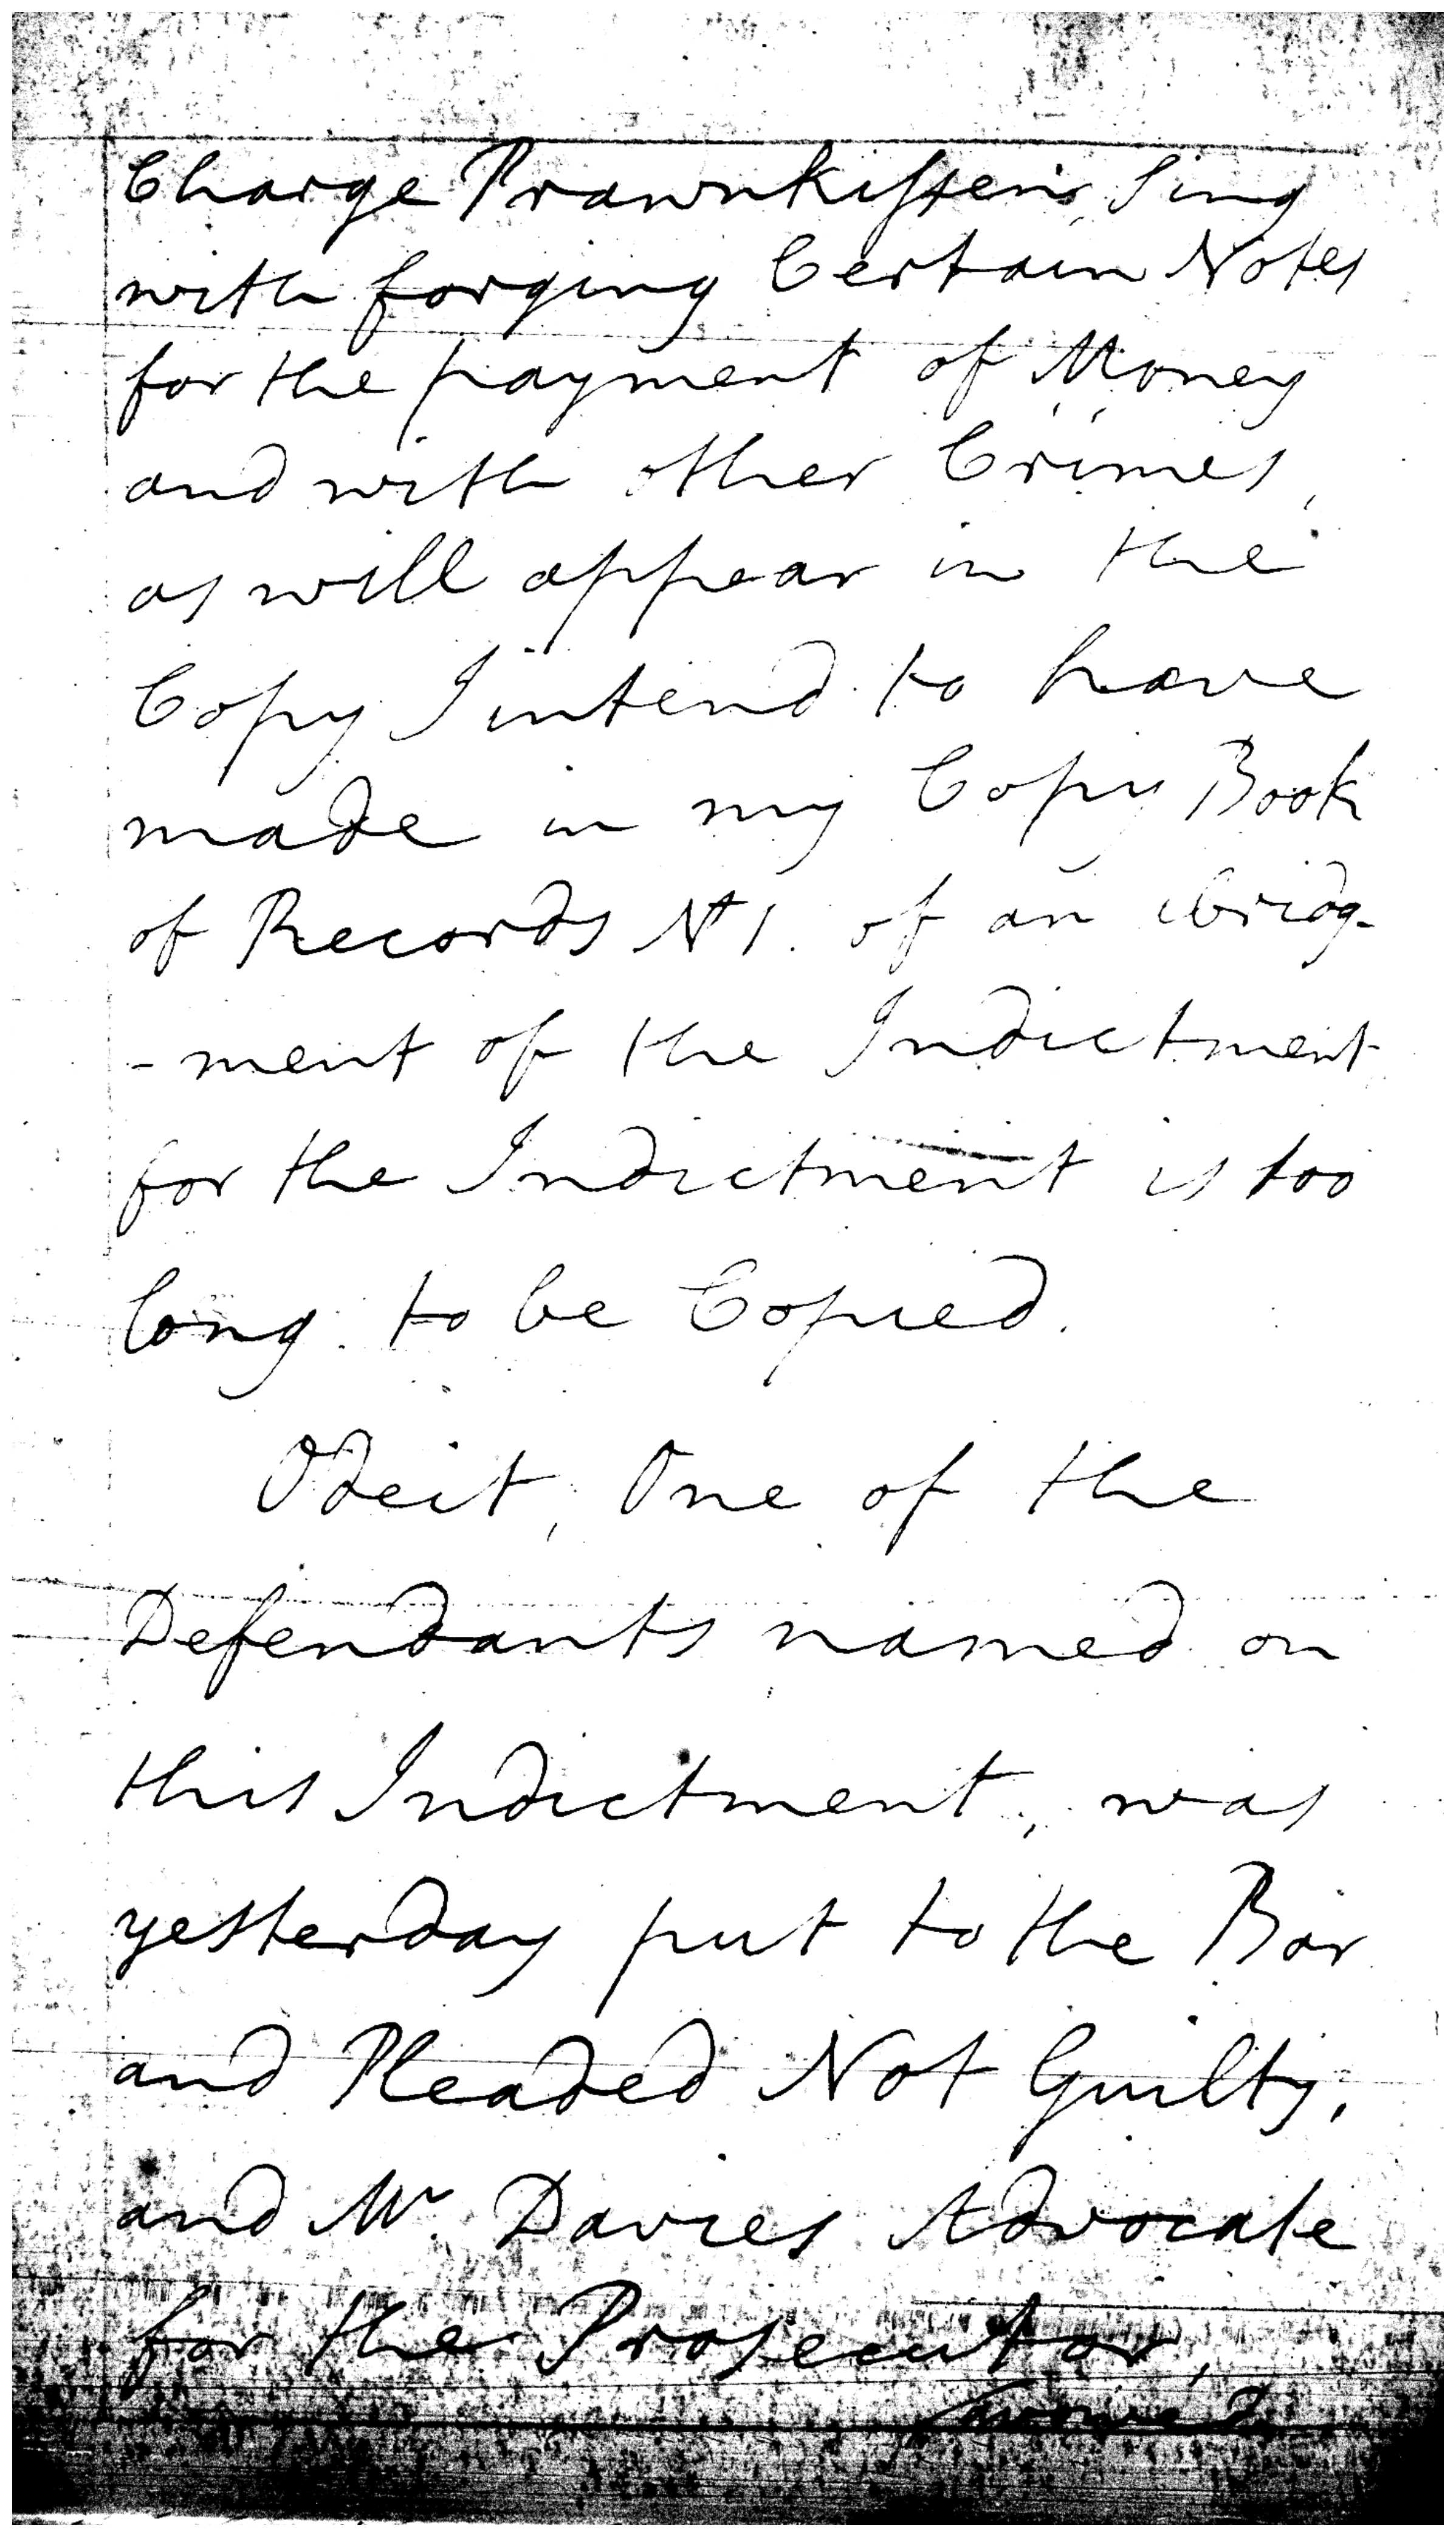 Charge Prawnkissen Sing
with forging Certain Notes
for the payment of Money
and with other Crimes,
as will appear in the
Copy I intend to have
made in my Copy Book
of Records No 1. of an abridg-
-ment of the Indictment
for the Indictment is too
long to be Copied.
Odeit, One of the
Defendants named on
this Indictment, was
yesterday put to the Bar
and Pleaded Not Guilty,
and Mr. Davies Advocate
for the Prosecutor,